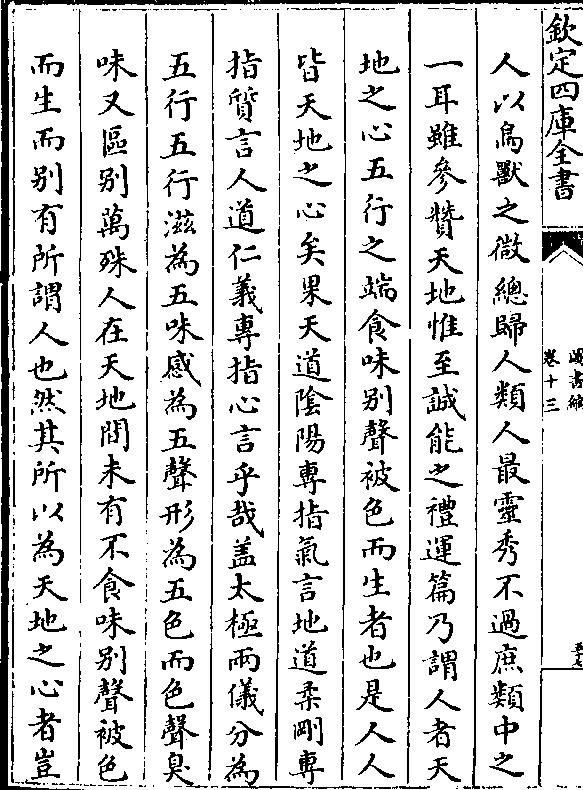 欽定四庫全書
圖書編
卷十三
人以鳥獸之微總歸人類人最靈秀不過庶類中之
一耳雖參贊天地惟至誠能之禮運篇乃謂人者天
地之心五行之端食味别聲被色而生者也是人人
皆天地之心矣果天道陰陽專指氣言地道柔剛專
指質言人道仁義專指心言乎哉盖太極兩儀分為
五行五行滋為五味感為五聲形為五色而色聲臭
味又區别萬殊人在天地間未有不食味别聲被色
而生而别有所謂人也然其所以為天地之心者豈